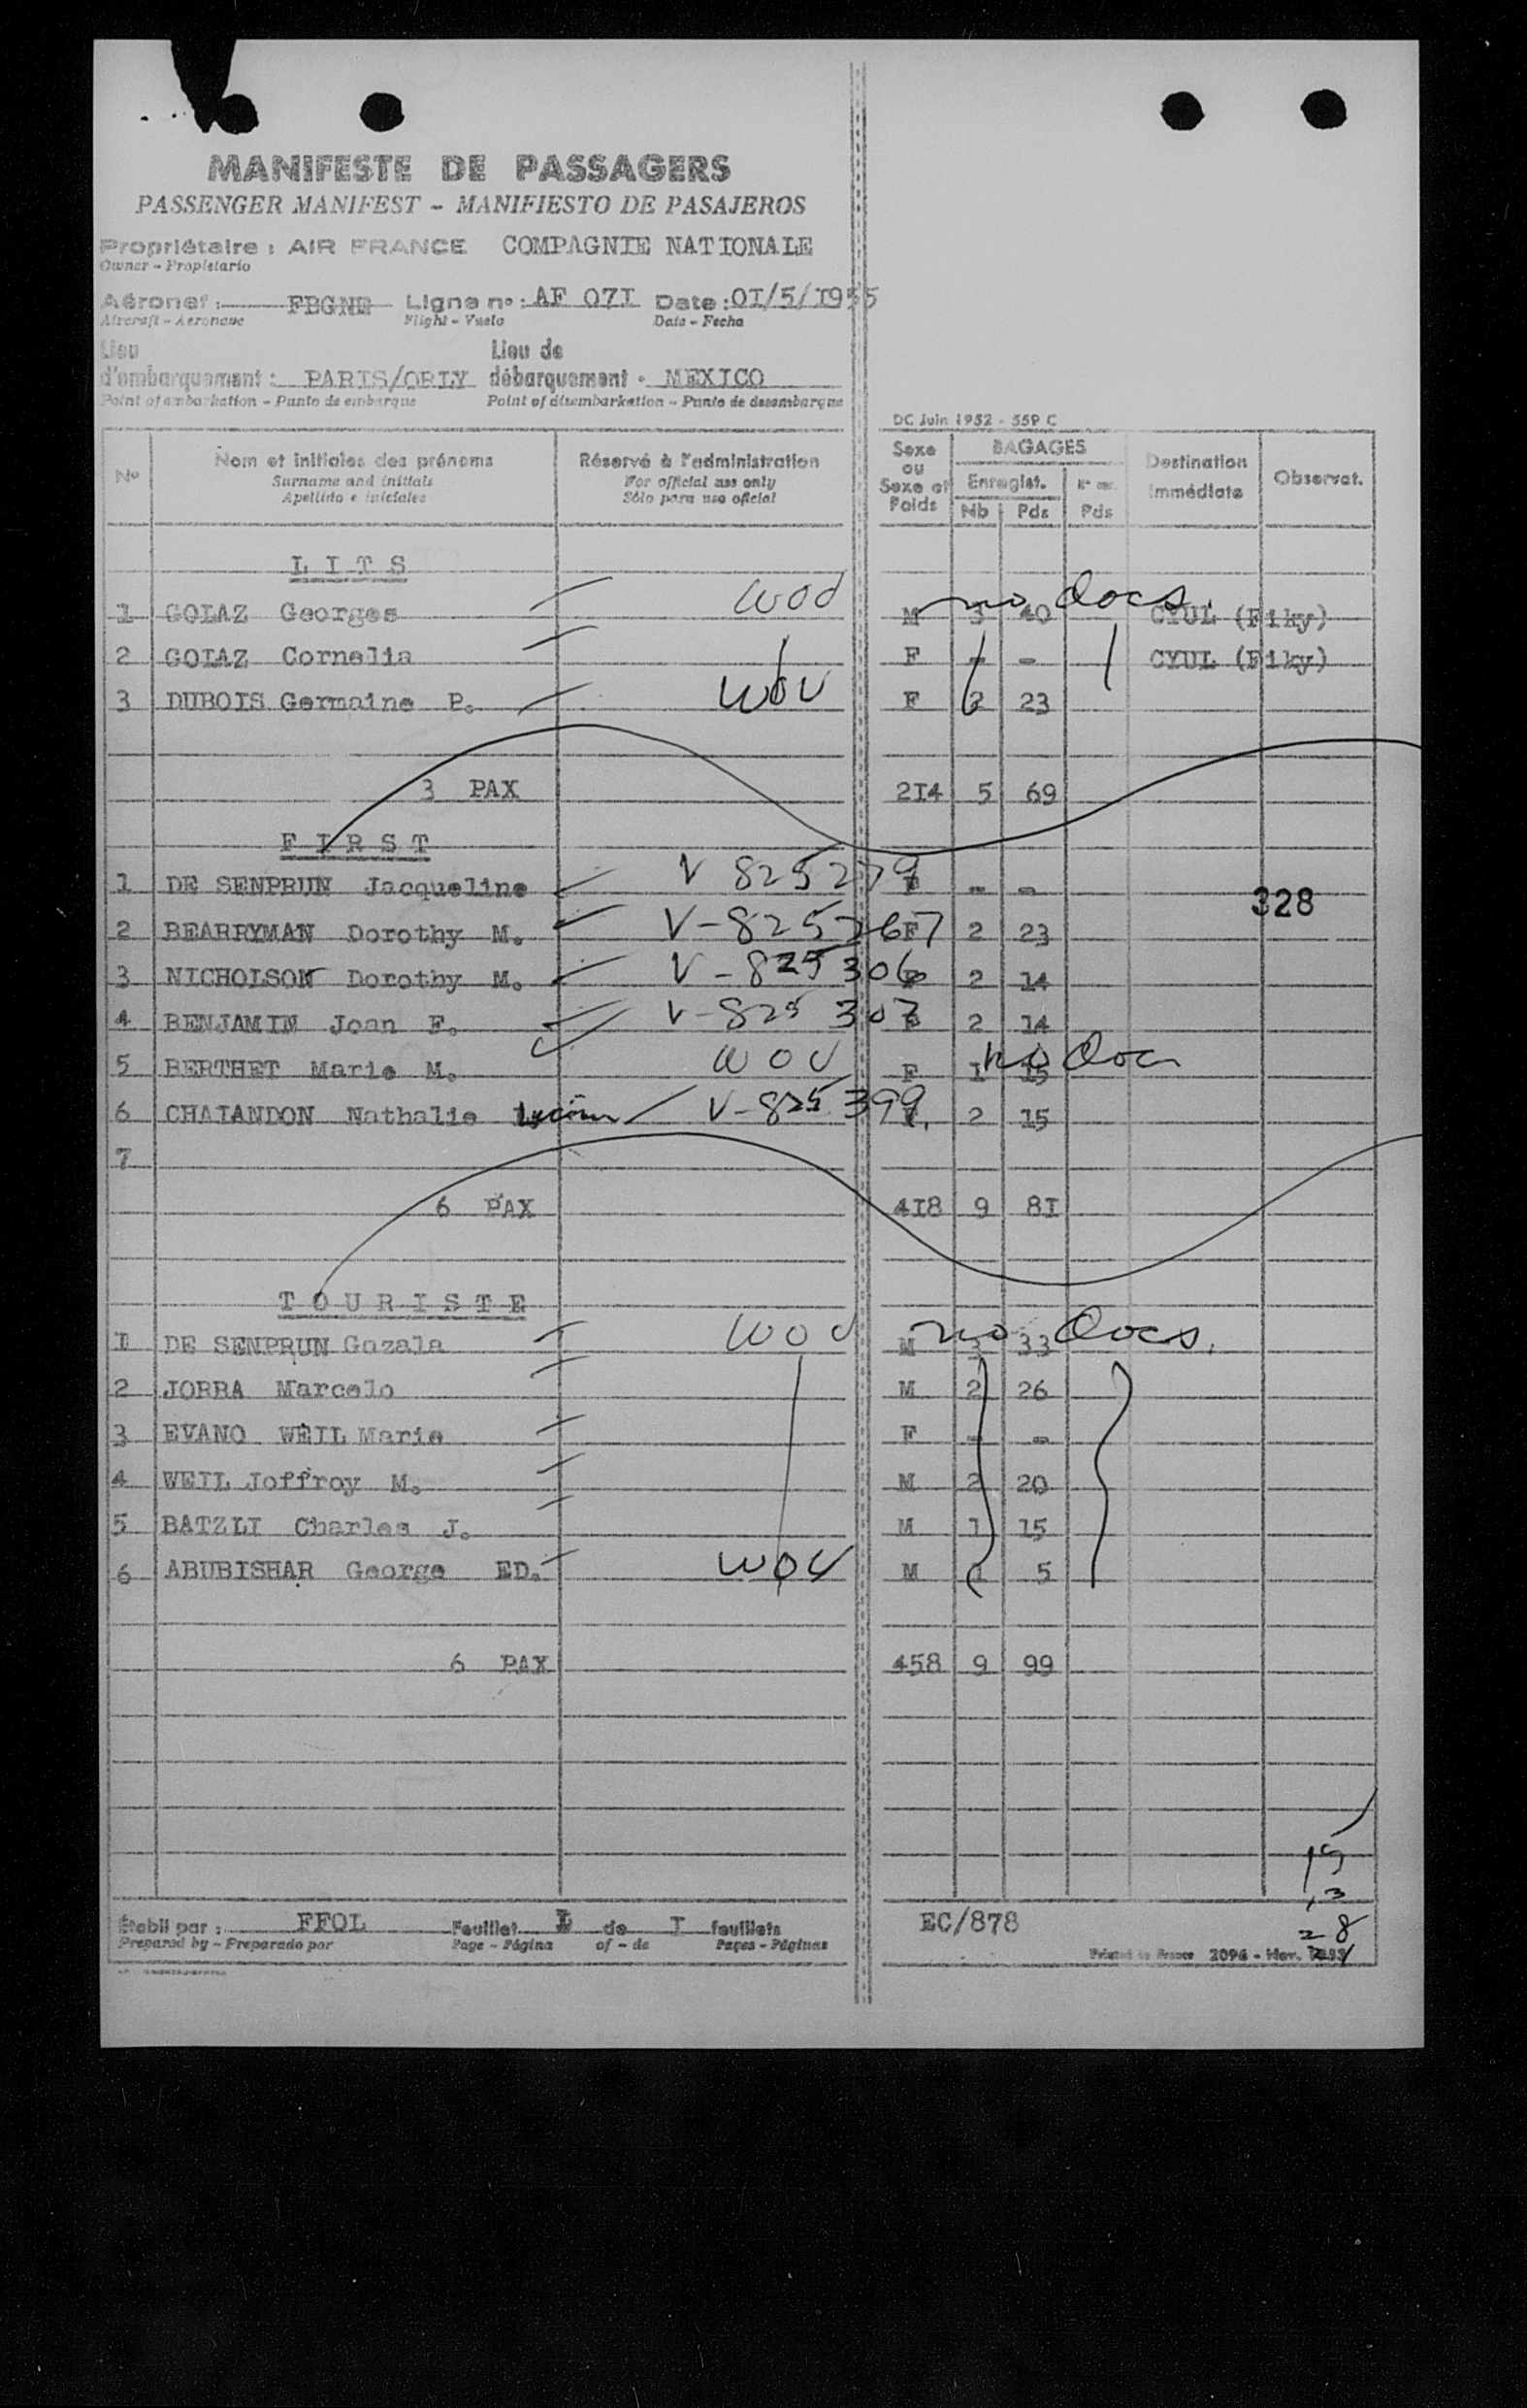 MANIFESTE DE PASSAGERS
PASSENGER MANIFEST - MANIFIESTO DE PASAJEROS
Propriétaire : AIR FRANCE COMPAGNIE NATIONALE
Owner - Propietario
Aéronef : FBGNE Ligne n° : AF 07I Date : 0I/5/I955
Aircraft - Aeronave Flight - Vuelo Date - Fecha
Lieu d'embarquement : PARIS/ORLY Lieu de débarquement : MEXICO
Point of embarkation - Punto de embarque Point of disembarkation - Punto de desembarque
DC Juin 1952 - 55P C
N° Nom et initiales des prénoms Réservé à l'administration Sexe ou Sexe et Poids BAGAGES Destination immédiate Observat.
Surname and initials For official use only Enregist.
Apellido e iniciales Sólo para uso oficial Nb Pds Pds
L I T S
1 GOLAZ Georges WOV M no docs. 3 40 CYUL (Fiky)
2 GOLAZ Cornelia F - - CYUL (Fiky)
3 DUBOIS Germaine P. WOV F 2 23
3 PAX 2I4 5 69
F I R S T
1 DE SENPRUN Jacqueline V 825279 F - -
328
2 BEARRYMAN Dorothy M. V-825267 F 2 23
3 NICHOLSON Dorothy M. V-825306 F 2 14
4 BENJAMIN Joan F. V-825307 F 2 14
5 BERTHET Marie M. WOV F 1 15 no doc
6 CHALANDON Nathalie V-825399. 2 15
7
6 PAX 4I8 9 8I
T O U R I S T E
I DE SENPRUN Gozala WOV M no docs. 3 33
2 JORBA Marcelo M 2 26
3 EVANO WEIL Marie F - -
4 WEIL Joffroy M. M 2 20
5 BATZLI Charles J. M 1 15
6 ABUBISHAR George ED. WOV M 1 5
6 PAX 458 9 99
15
13
28
Établi par : FFOL Feuillet I de I feuillets EC/878
Prepared by - Preparado por Page - Página of - de Pages - Páginas
Printed in France 2096 - Nov.